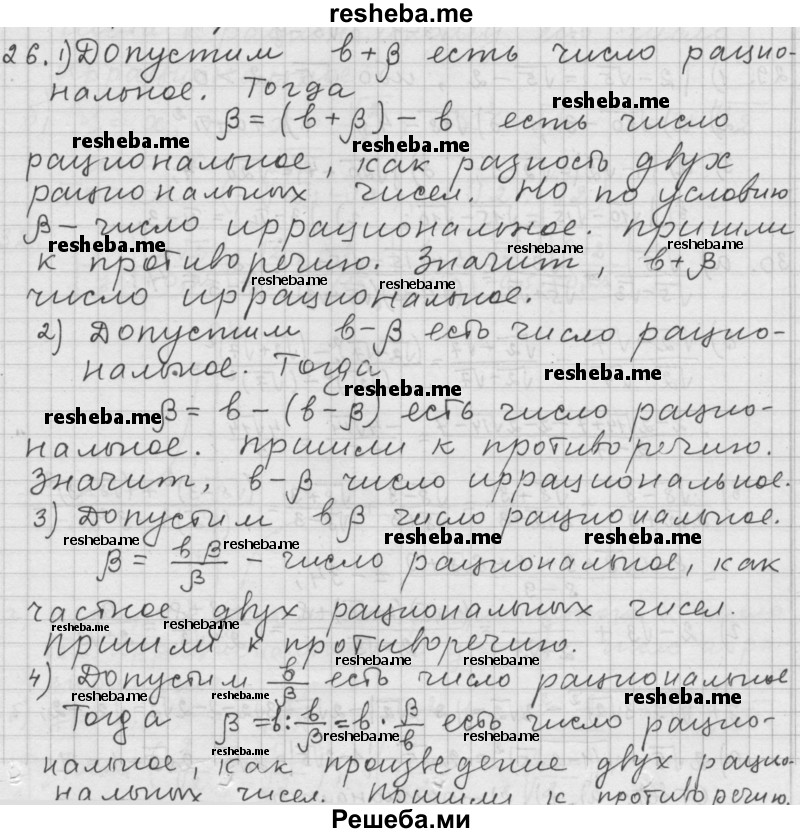 resheba.me
26. 1) Допустим в+β есть число рацио-
нальное. Тогда
β = (в+β) − в есть число
resheba.me
resheba.me resheba.me
рациональное, как разность двух
рациональных чисел. Но по условию
β − число иррациональное. Пришли
resheba.me resheba.me resheba.me
к противоречию. Значит, в+β
resheba.me resheba.me
число иррациональное.
2) Допустим в−β есть число рацио-
нальное. Тогда
resheba.me
resheba.me
resheba.me β = в − (в−β) есть число рацио-
нальное. Пришли к противоречию.
Значит, в−β число иррациональное.
3) Допустим вβ число рациональное.
resheba.me resheba.me resheba.me resheba.me
β = вβ/β − число рациональное, как
частное двух рациональных чисел.
resheba.me
Пришли к противоречию.
resheba.me resheba.me
4) Допустим в/β есть число рациональное
resheba.me resheba.me resheba.me
Тогда β = в : в/β = в · β/в есть число рацио-
resheba.me resheba.me
нальное, как произведение двух рацио-
resheba.me resheba.me resheba.me
нальных чисел. Пришли к противоречию.
Решеба.ми